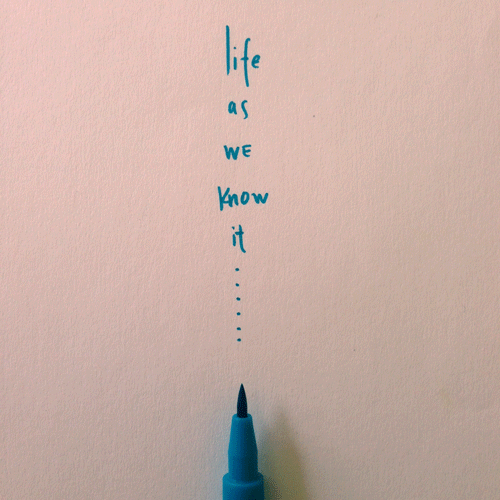 life
as
WE
know
it
.
.
.
.
.
.